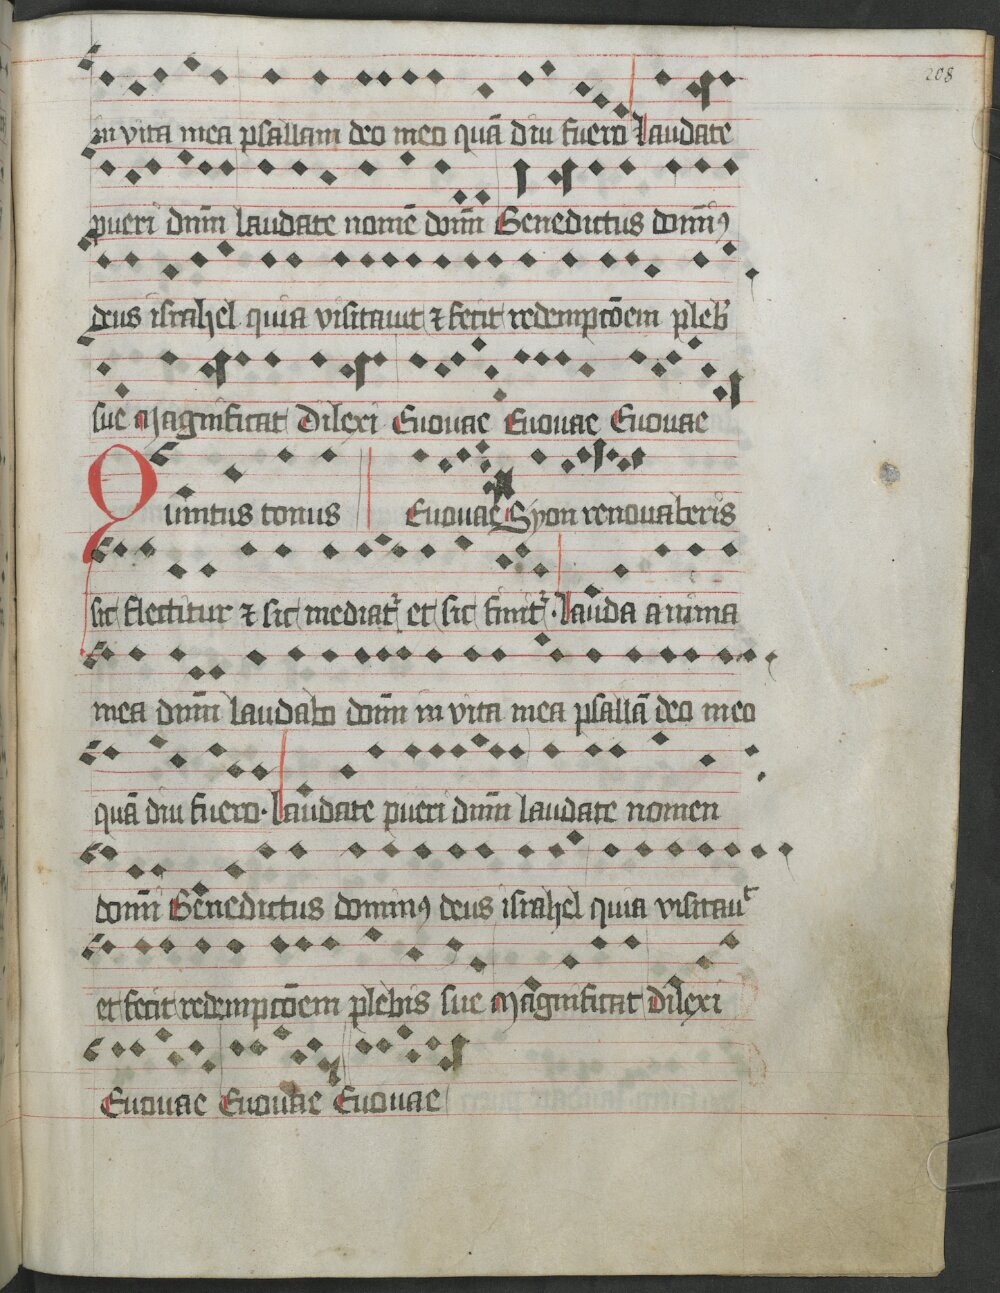 208
in vita mea psallam deo meo quā diu fuero Laudate
pueri dn̄m laudate nomē domī Benedictus domin⁹
deus israhel quia visitauit ⁊ fecit redempcōem pleb'
sue Magnificat Dilexi Euouae Euouae Euouae
Quintus tonus Euouae Syon renouaberis
sic flectitur ⁊ sic mediat᷑ et sic finit᷑. Lauda anima
mea dn̄m laudabo domī in vita mea psallā deo meo
quā diu fuero. Laudate pueri dn̄m laudate nomen
domī Benedictus domin⁹ deus israhel quia visitauᵗ
et fecit redempcōem plebis sue Magnificat Dilexi
Euouae Euouae Euouae